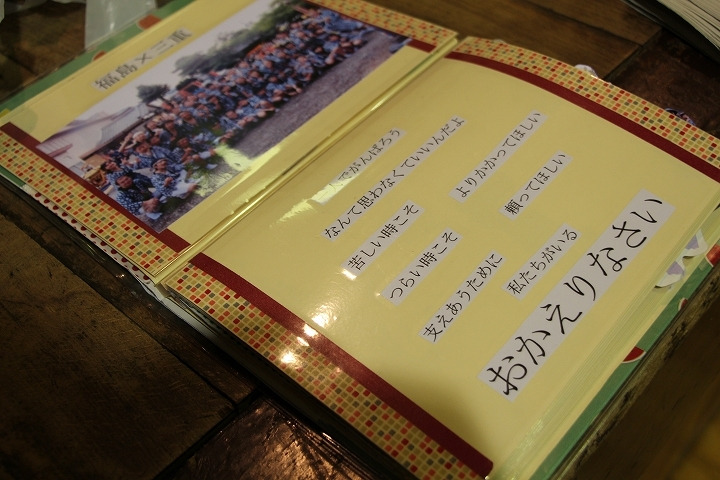 福島×三重
でがんばろう
なんて思わなくていいんだよ
苦しい時こそ
よりかかってほしい
つらい時こそ
頼ってほしい
支えあうために
私たちがいる
おかえりなさい